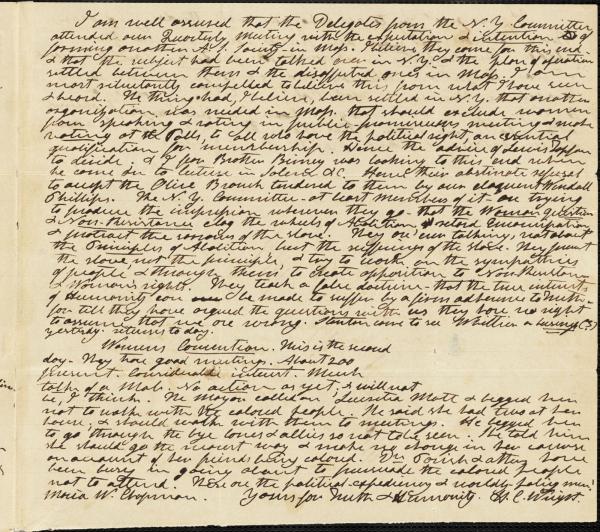 I am well assured that the Delegates from the N.Y. Committee
attended our Quarterly Meeting with the expectation & intention of
forming another A.S. Society in Mass. I believe they came for this end
& that the subject had been talked over in N.Y. & the plan of operation
settled between them & the disaffected ones in Mass. I am
most reluctantly compelled to believe this from what I have seen
& heard. The thing had, I believe, been settled in N.Y. that another
organization was needed in Mass. that should exclude women
from speaking & voting in public promiscuous meetings & make
voting at the Polls, to all who have the political right an essential
qualification for membership. Hence the advice of Lewis Tappan
to divide. & I fear Brother Birney was looking to this end when
he came on to lecture in Salem &c. Hence their obstinate refusal
to accept the Olive Branch tendered to them by our eloquent Wendall
Phillips. The N.Y. Committee - at least members of it - are trying
to produce the impression wherever they go - that the Woman Question
& Non-Resistance clog the wheels of Abolition & retard Emancipation
& protract the sorrows of the slave. They are ever talking, not about
the Principles of Abolition but the sufferings of the slave. They present
the slave not the principle, & try to work on the sympathies
of people & through them to create opposition to Non-Resistance
& Woman's rights. They teach a false doctrine - that the true interests
of Humanity can be made to suffer by a firm adherence to truth -
for till they have argued the questions with us they have no right
to assume that we are wrong. Stanton came to see Whittier
yesterday returns to day.
Womens Convention. This is the second
day - They have good meetings. About 200
present. Considerable interest. Much
talk of a Mob. No action as yet, & will not
be, I think. The Mayor called on Lucretia Mott & begged her
not to walk with the colored people. He said she had two at her
house, & should walk with them to meetings. He begged her
to go through the bye lanes & allies so not to be seen. She told him
she should go the nearest way & make no change in her course
on account of her friends being colored. Dr. Parish & others have
been busy in going about to persuade the colored people
not to attend. These are the political expediency & worldly policy men!
Maria W. Chapman. Yours for Truth & Humanity. H.C. Wright.